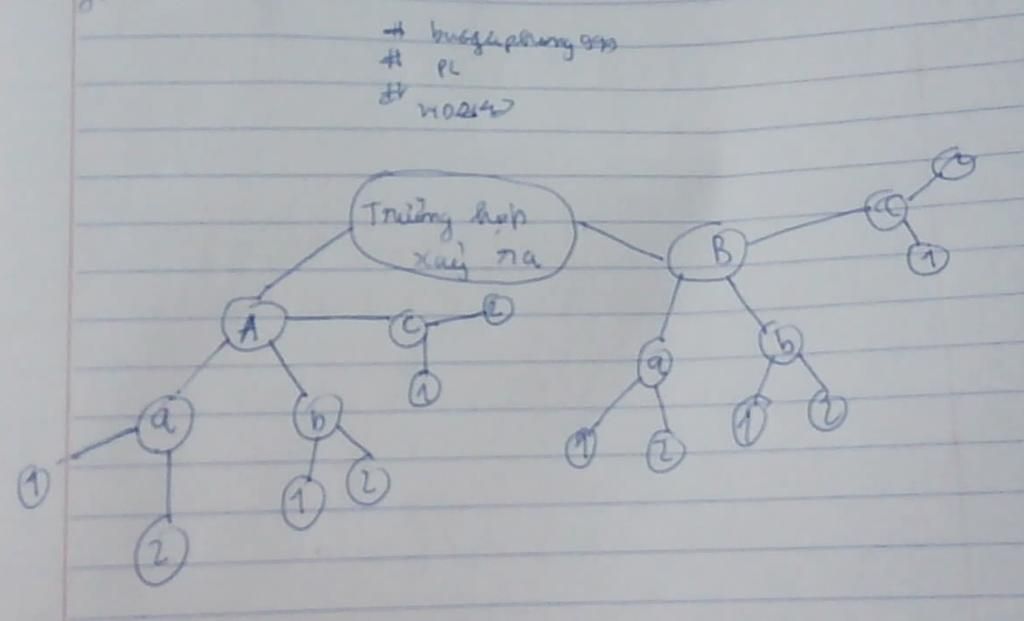 #
# PL
#
Trường hợp
xảy ra
A
B
c
1
c
2
1
a
b
a
b
1
2
1
2
1
2
1
2